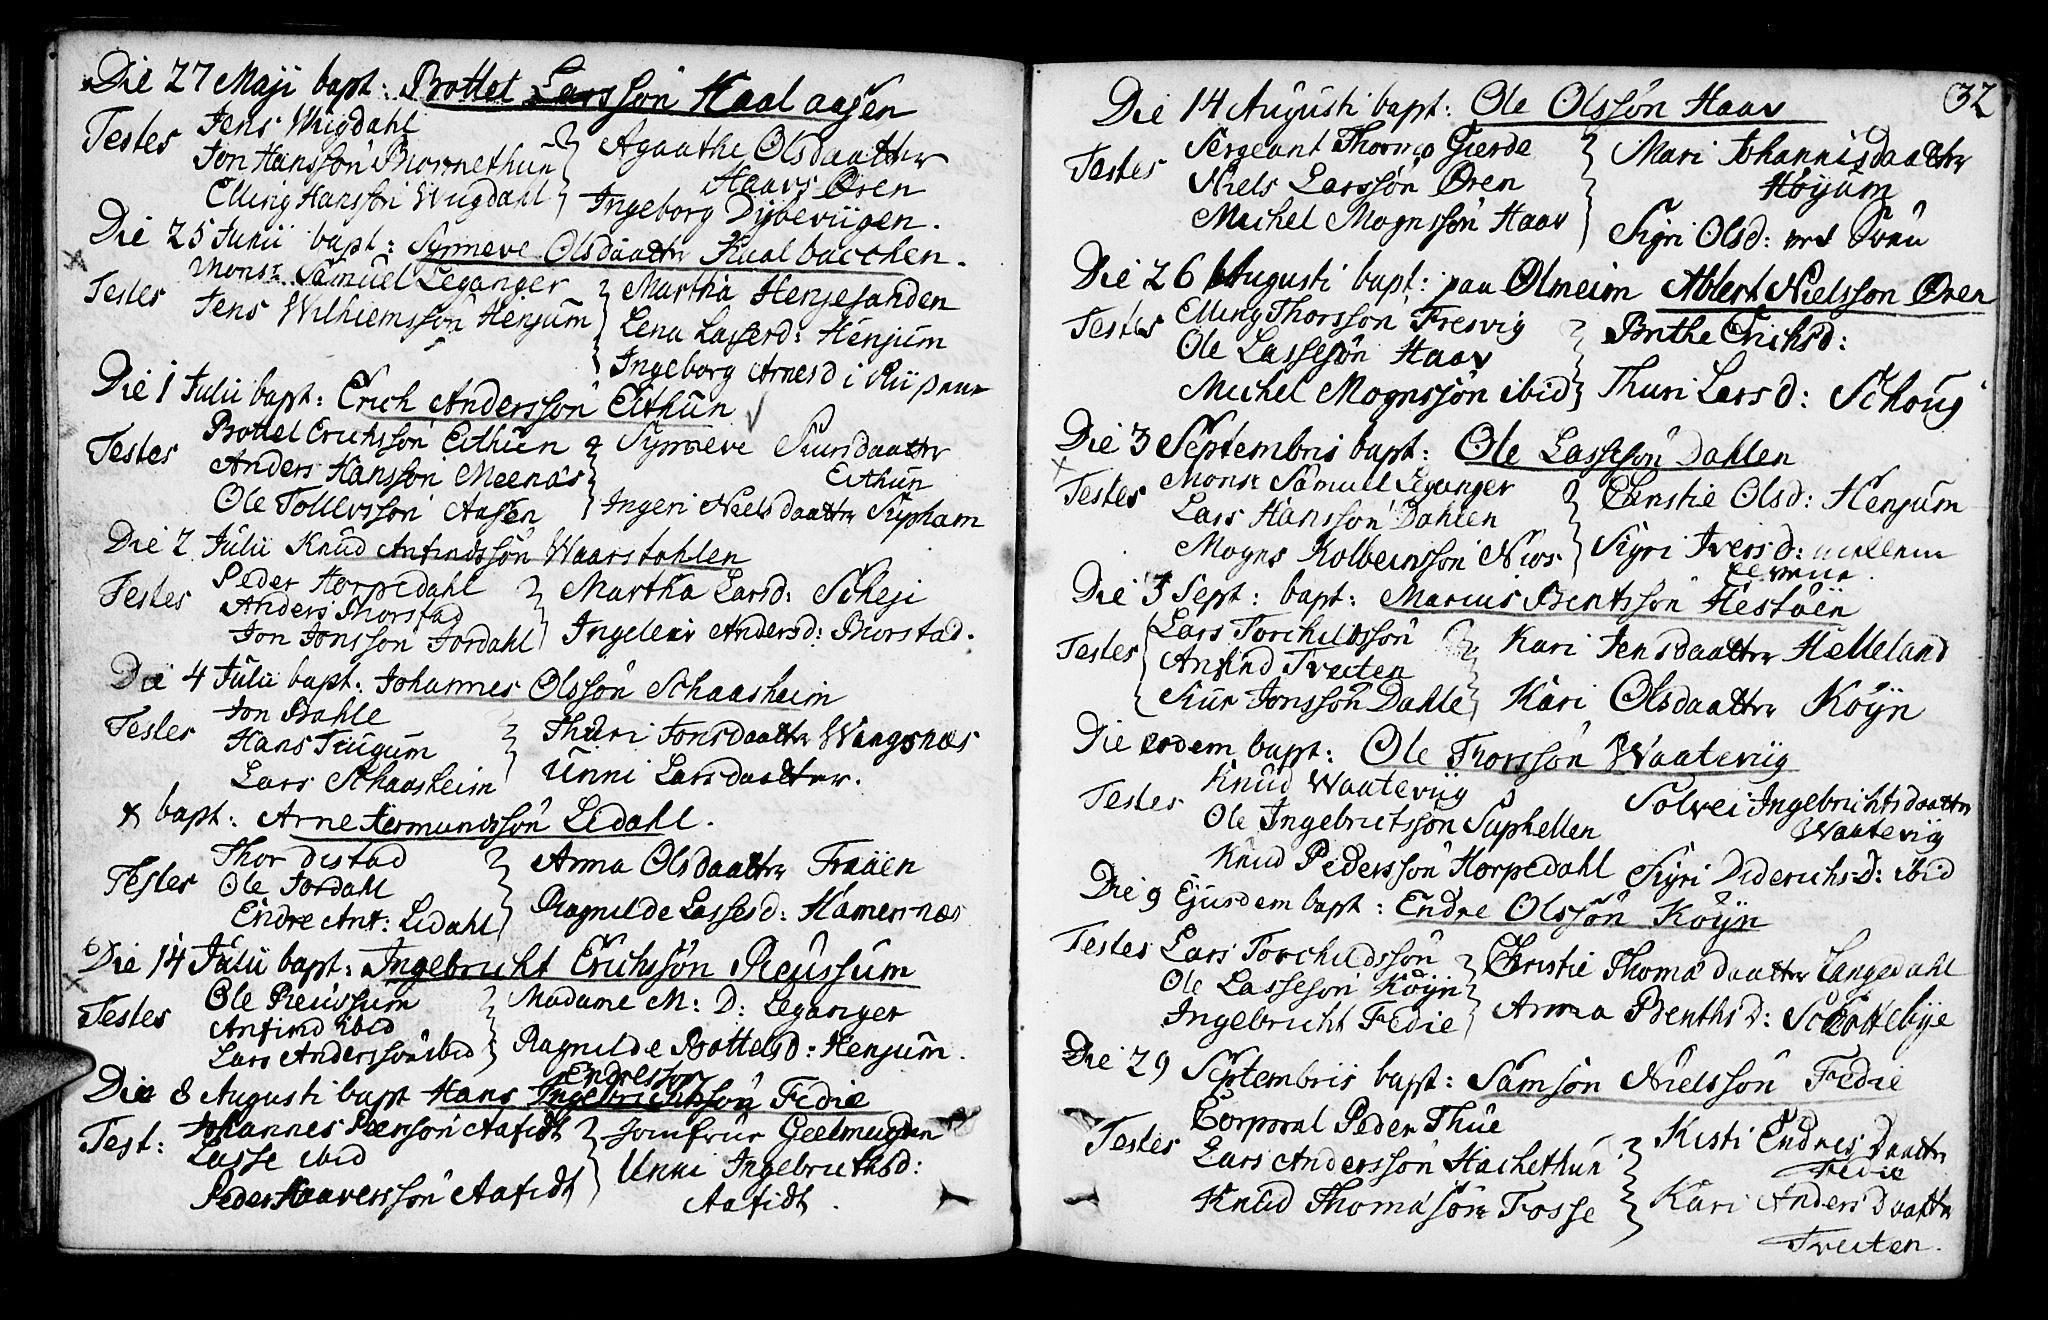 Die 27 Maji bapt: Bottel Larssön Haal aasen
Testes Jens Wugdahl
Jon Hanssön Biornethun
Elling Hanssön Wugdahl
Agaathe Olsdaatter
Haavs Øren
Ingeborg Dybevügen.
Die 25 Junii bapt: Synneve Olsdaattr Kaalbacchen.
Testes Monsr Samuel Leganger
Jens Wilhiemssön Henjum
Martha Henjesanden
Lena Lasserd: Henjum
Ingeborg Arnesd i
Die 1 Julii bapt: Erich Anderssön Eithun
Testes Bottel Erichssön Eithun
Anders Hanssön Meenas
Ole Tollevssön Aasen
Synneve Siursdaattr
Eithun
Ingeri Nielsdaattr Supham
Die 2 Julii Knud Anfindssön Waarstohlen
Testes Peder Horpedahl
Anders Thorstad
Jon Jonssön Jordahl
Martha Larsd: Scheji
Ingeleiv Andersd: Borstad.
Die 4 Julii bapt: Johannes Olssön Schaasheim
Testes Jon Bahle
Hans Tuugum
Lars Schaasheim
Thuri Jonsdaattr Wangsnæs
Unni Larsdaatter.
& bapt: Arne Hermundssön Lidahl.
Testes Thor distad
Ole Jordahl
Endre Ant: Lidahl
Anna Olsdaattr Frååen
Ragnilde Lassesd: Hamernæs
Die 14 Julii bapt: Ingebricht Erichssön Reussum
Testes Ole Reussum
Anfind ibid
Lars Anderssön ibid
Madame M: D: Leganger
Ragnilde Bottelsd: Henjum.
Endressön
Die 8 Augusti bapt Hans Ingebrichtssön Fedie
Test: Johannes Peersön Aafidt
Lasse ibid
Peder Haaverssön Aafidt
Jomfrur Geelmuyden
Unni Ingebrichtsd:
Aafidt.
32
Die 14 Augusti bapt: Ole Olssön Haav
Testes Sergeant Thormo Gierde
Niels Larssön Øren
Michel Mognssön Haav
Mari Johannisdaattr
Höyum
Sigri Olsd:
Die 26 Augusti bapt: paa Olmeim Ablert Nielsson Øren
Testes Elling Thorssön Fresvig
Ole Lassesön Haav
Michel Mognssön ibid
Brithe Erichsd:
Thuri Larsd: Schoug
Die 3 Septembris bapt: Ole Lassesön Dahlen
Testes Monsr Samuel Leganger
Lars Hanssön Dahlen
Mogns Kolbeinssön Nios
Christie Olsd: Henjum
Sigri Iversd: mellem
Die 3 Sept: bapt: Marcus Bentssön Hestöen
Testes Lars Torchildssön
Anfind Tveiten
Siur Jonssön Dahle
Kari Jensdaattr Helleland
Kari Olsdaattr Röyn
Die eodem bapt: Ole Thorssön Waatevüg
Testes Knud Waatevüg
Ole Ingebrictssön Suphellen
Knud Pederssön Horpedahl
Solvei Ingebrichtsdaattr
Waatevüg
Sigri Diderichs-D: ibid
Die 9 Ejusdem bapt: Endre Olssön Röyn
Testes Lars Torchildssön
Ole Lassesön Röyn
Ingebricht Fedie
Christie Thomadaattr Langedahl
Anna Benthsd: Schottebye
Die 29 Septembris bapt: Samson Nielssön Fedie
Testes Corporal Peder Thue
Lars Anderssön Hachethun
Knud Thomasön Fosse
Kisti Endresdaattr
Fedie
Kari Andersdaattr
Tveiten.